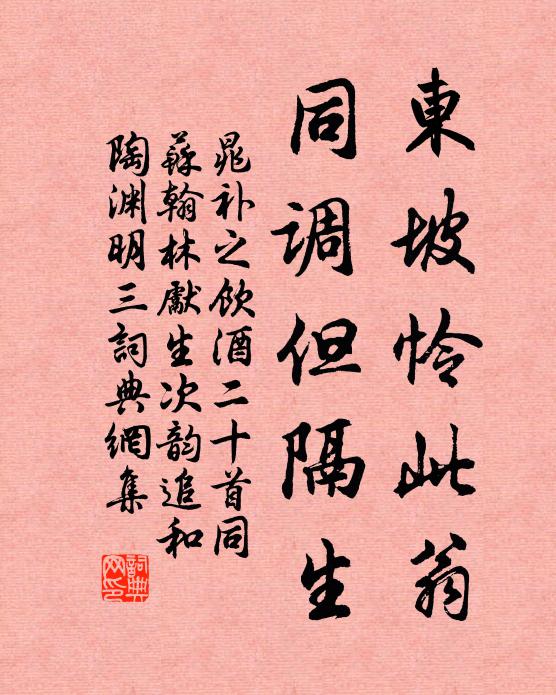 東坡怜此翁
同调但隔生
晁补之饮酒二十首同
蘇翰林獻生次韵追和
陶渊明三詞典網集
詞典
网印